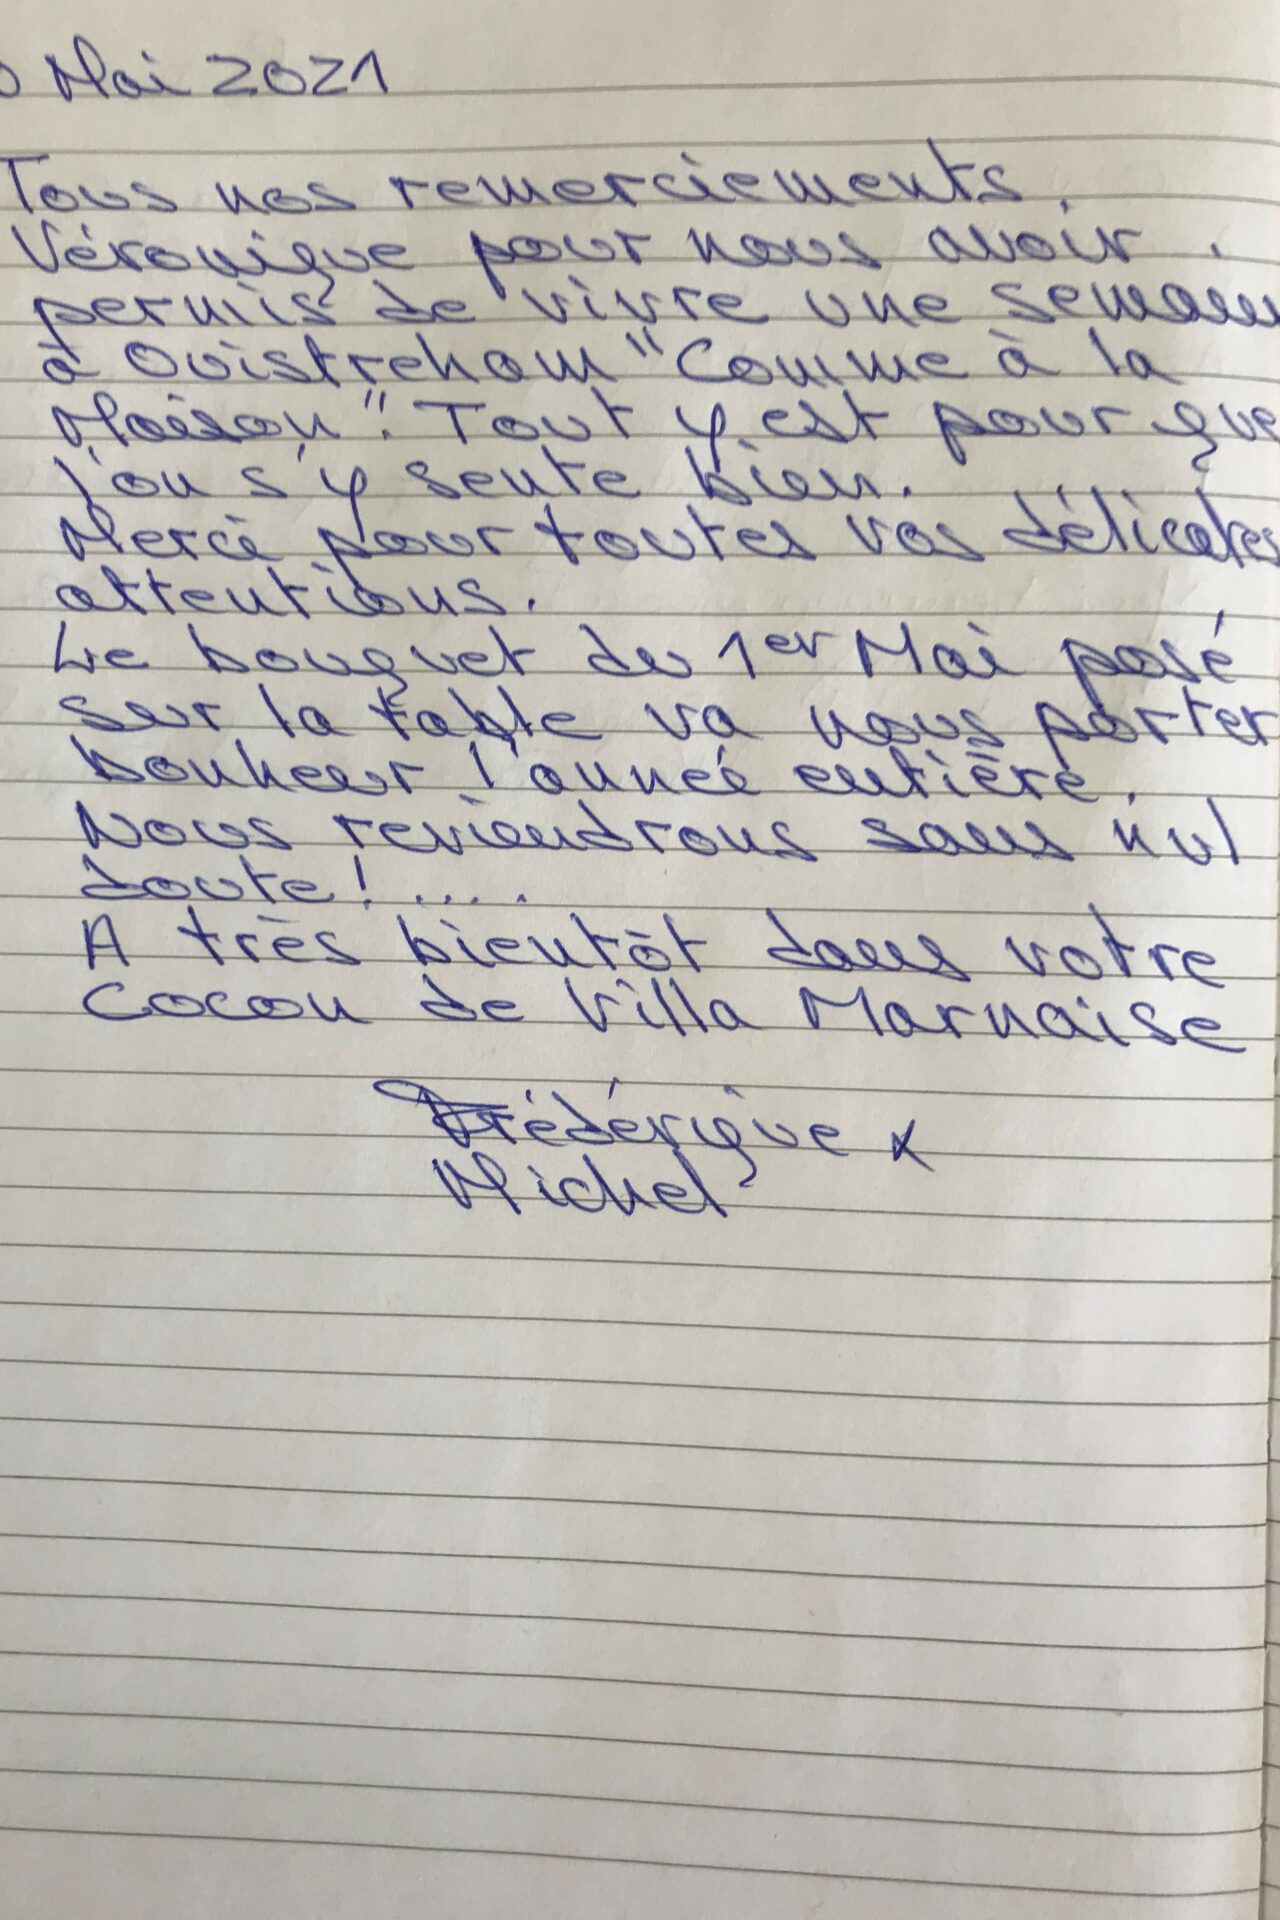 Mai 2021
Tous nos remerciements
Véronique pour nous avoir
permis de vivre une semaine
à Ouistreham "Comme à la
Maison". Tout y est pour que
l'on s'y sente bien.
Merci pour toutes vos délicates
attentions.
Le bouquet du 1er Mai posé
sur la table va nous porter
bonheur l'année entière.
Nous reviendrons sans nul
doute! ....
A très bientôt dans votre
Cocon de Villa Marnaise
Frédérique &
Michel